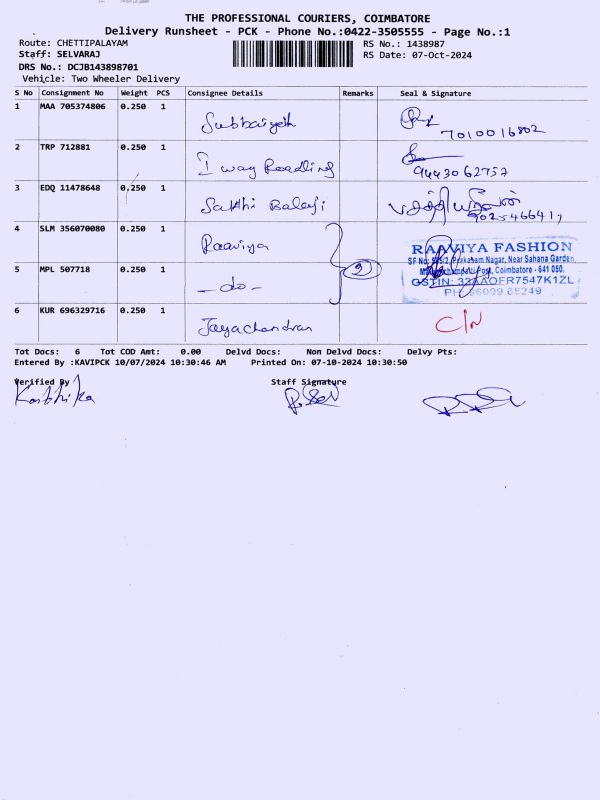 THE PROFESSIONAL COURIERS, COIMBATORE
Delivery Runsheet - PCK - Phone No.:0422-3505555 - Page No.:1
Route: CHETTIPALAYAM RS No.: 1438987
Staff: SELVARAJ RS Date: 07-Oct-2024
DRS No.: DCJB143898701
Vehicle: Two Wheeler Delivery
S No Consignment No Weight PCS Consignee Details Remarks Seal & Signature
1 MAA 705374806 0.250 1
7010016802
2 TRP 712881 0.250 1 I way Roadling
9443062757
3 EDQ 11478648 0.250 1 Sakthi Balaji
9025466417
4 SLM 356070080 0.250 1 Raaviya
RAAVIYA FASHION
SF No: Prakasam Nagar, Near Sahana Garden,
Post, Coimbatore - 641 050.
5 MPL 507718 0.250 1 - do -
GSTIN: 33AAOFR7547K1ZL
6 KUR 696329716 0.250 1 Jayachandran C/N
Tot Docs: 6 Tot COD Amt: 0.00 Delvd Docs: Non Delvd Docs: Delvy Pts:
Entered By :KAVIPCK 10/07/2024 10:30:46 AM Printed On: 07-10-2024 10:30:50
Verified By Staff Signature
Karthika